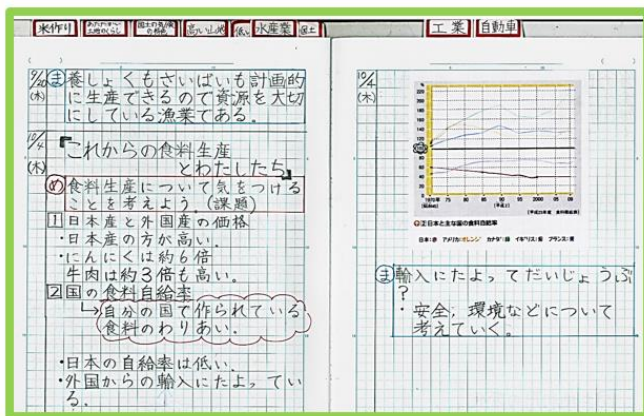 米作り
高い山地
低い
水産業
国土
工業
自動車
9/20
(木)
ま
養しょくもさいばいも計画的
に生産できるので資源を大切
にしている漁業である。
10/4
(木)
『これからの食料生産
とわたしたち』
め
食料生産について気をつける
ことを考えよう。(課題)
1 日本産と外国産の価格
・日本産の方が高い。
・にんにくは約6倍
牛肉は約3倍も高い。
2 国の食料自給率
↳自分の国で作られている
食料のわりあい。
・日本の自給率は低い。
・外国からの輸入にたよってい
る。
10/4
(木)
%
220
200
180
160
140
120
100
80
60
40
20
0
1970年
75
80
85
90
95
2000
05
09
②日本と主な国の食料自給率
日本:赤 アメリカ:オレンジ カナダ:緑 イギリス:紫 フランス:青
ま
輸入にたよってだいじょうぶ
?
・安全,環境などについて
考えていく。